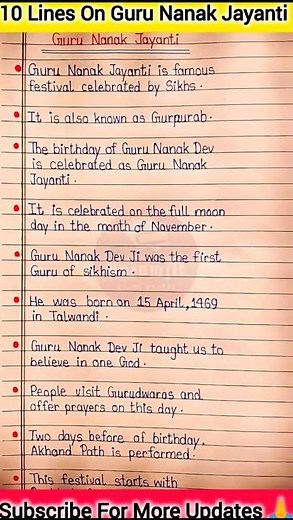 10 Lines On Guru Nanak Jayanti
Guru Nanak Jayanti
Guru Nanak Jayanti is famous
festival celebrated by Sikhs.
It is also known as Gurpurab.
The birthday of Guru Nanak Dev
is celebrated as Guru Nanak
Jayanti.
It is celebrated on the full moon
day in the month of November.
Guru Nanak Dev Ji was the first
Guru of sikhism.
He was born on 15 April, 1469
in Talwandi.
Guru Nanak Dev Ji taught us to
believe in one God.
People visit Gurudwaras and
offer prayers on this day.
Two days before of birthday,
Akhand Path is performed.
This festival starts with
Subscribe For More Updates 🙏